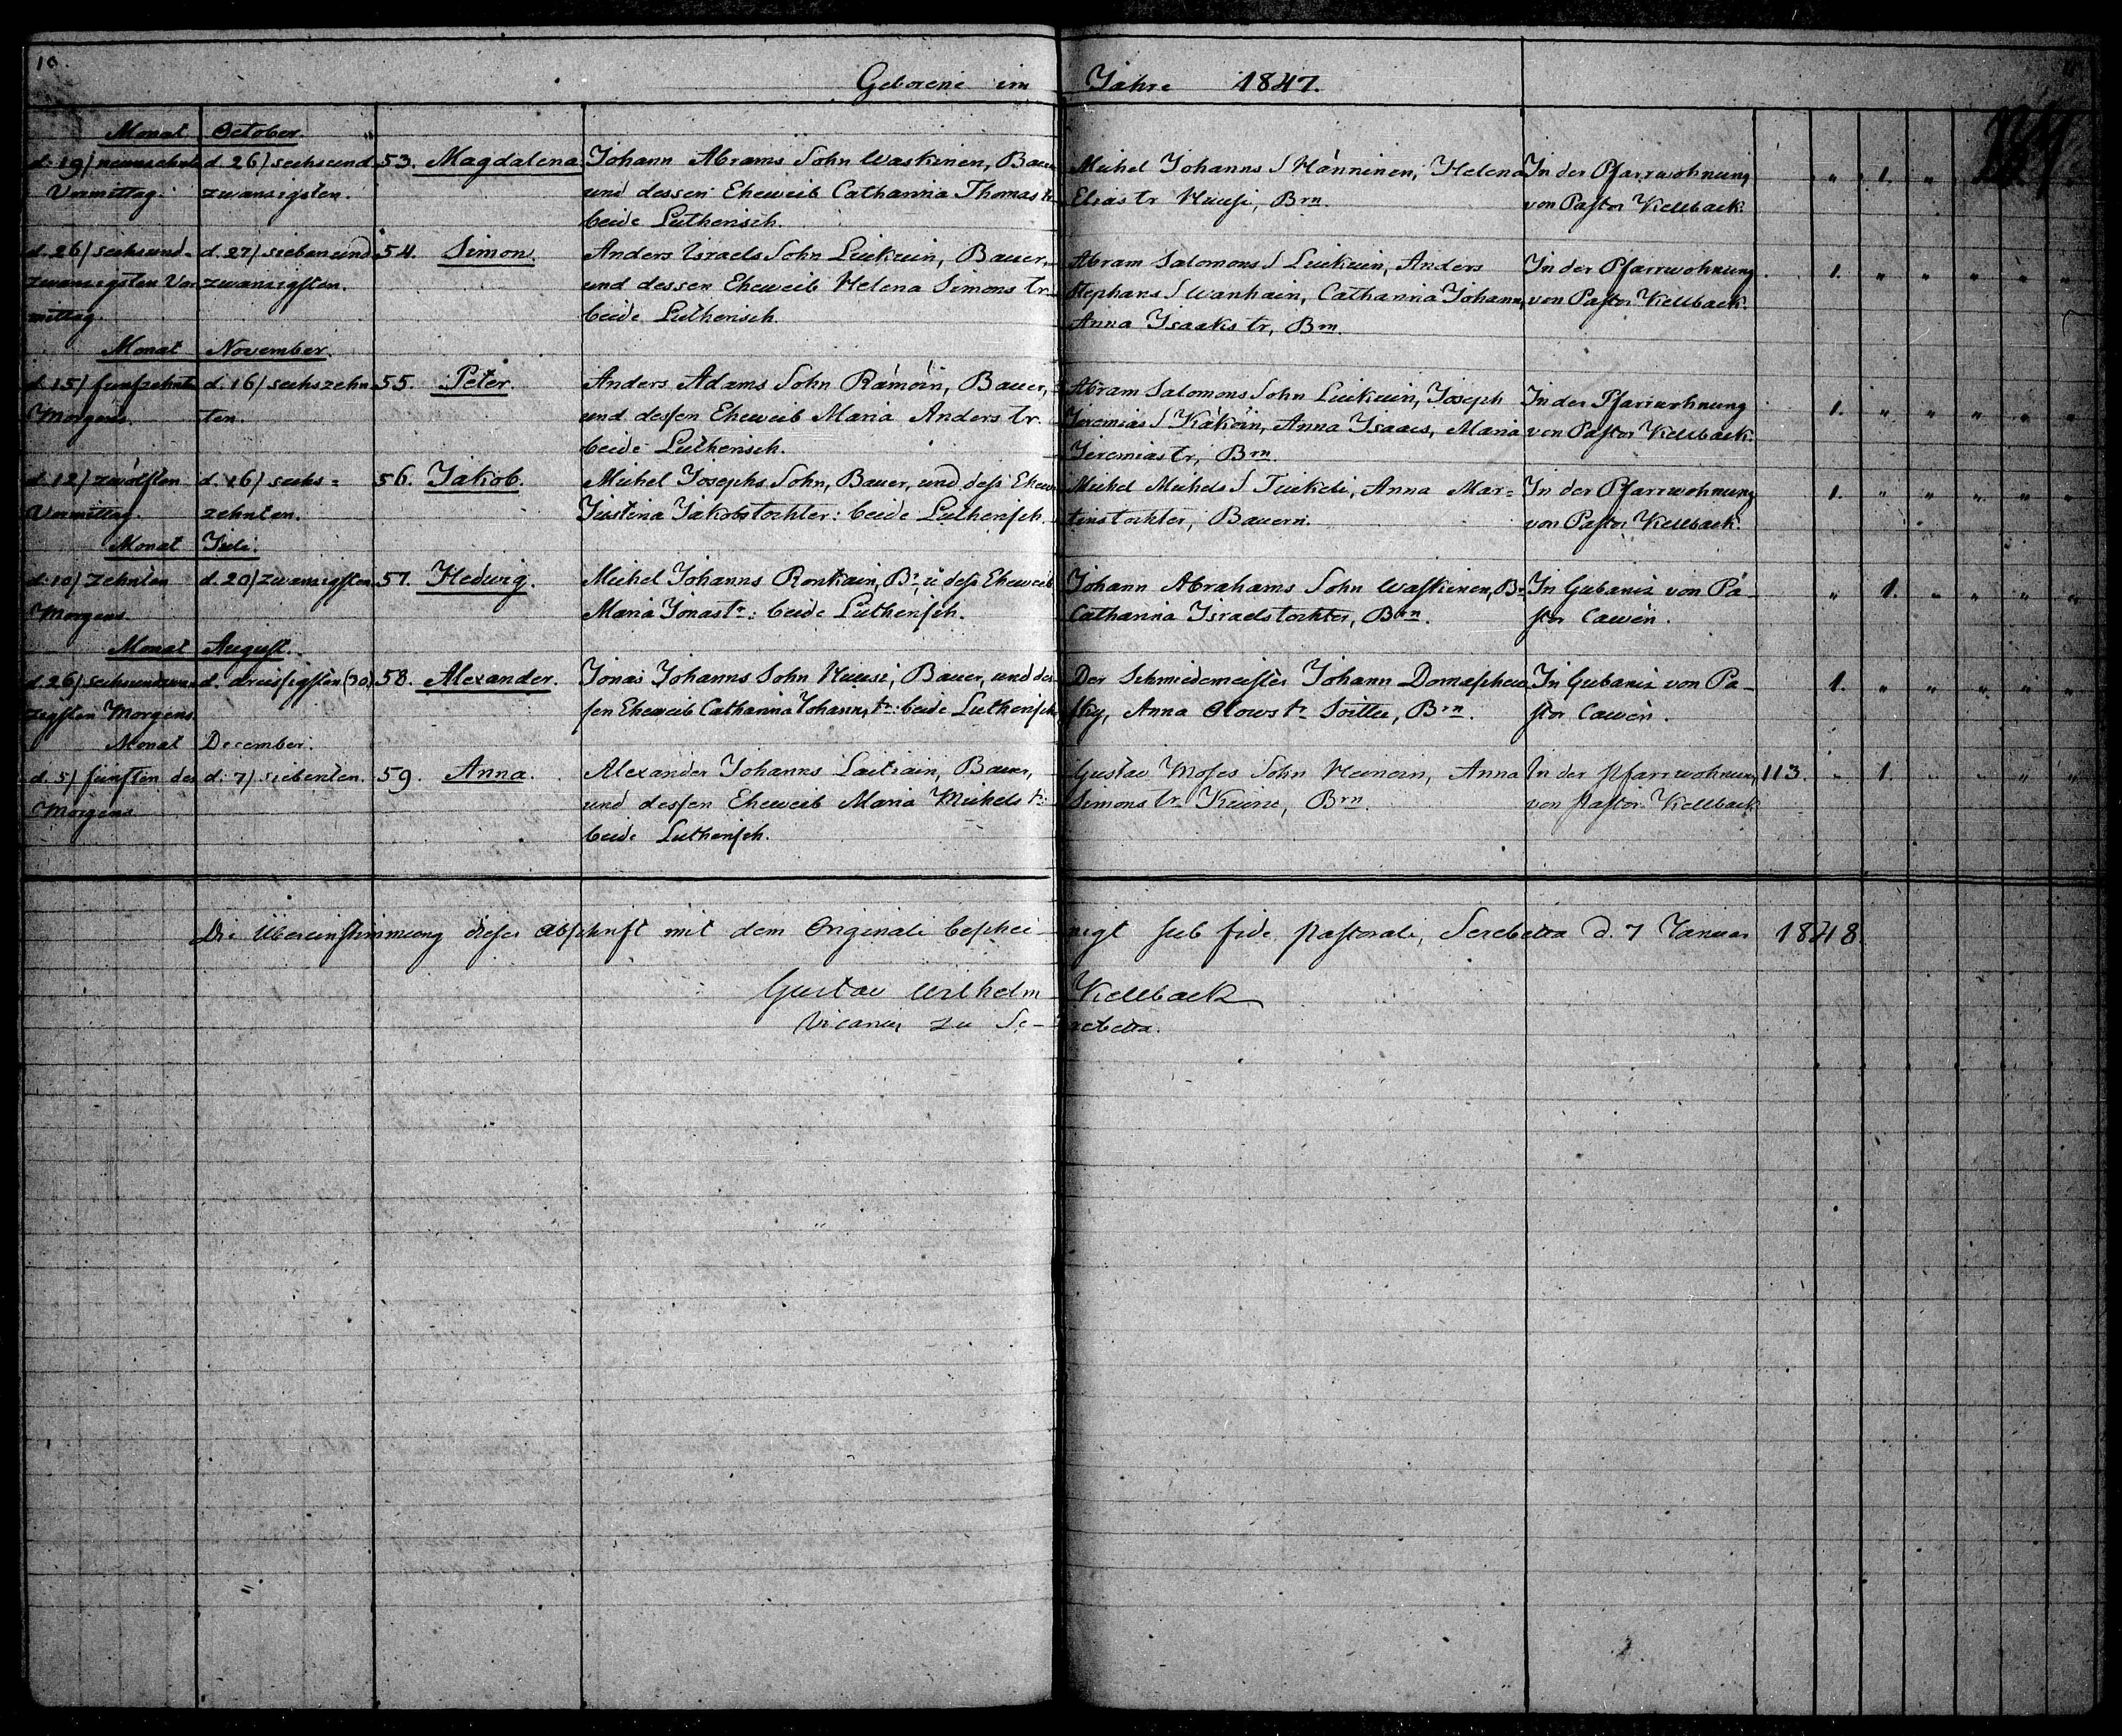 10.
Geborene im Jahre 1847.
Monat October
d. 19/ neunzehnten d. 26/ sechsund 53. Magdalena Johann Abrams Sohn Waskinen, Bauer Michel Johanns S Hänninen, Helena In der Pfarrwohnung " 1. "
Vormittag. zwanzigsten. und dessen Eheweib Catharina Thomas tr. Elias tr Huusi, Brn. von Pastor Kiellback.
beide Lutherisch.
d. 26/ sechsund- d. 27/ siebenund 54. Simon. Anders Israels Sohn Liukuin, Bauer, Abram Salomons S Liukuin, Anders In der Pfarrwohnung 1. " " " " "
zwanzigsten Vor zwanzigsten. und dessen Eheweib Helena Simons tr. Stephans S Wanhain, Catharina Johann, von Pastor Kiellback.
mittag. beide Lutherisch. Anna Isaaks tr, Brn.
Monat November.
d. 15/ funfzehnten d. 16/ sechszehn 55. Peter. Anders Adams Sohn Rämöin, Bauer, Abram Salomons Sohn Liukuin, Joseph In der Pfarrwohnung 1. " " " " "
Morgens. ten. und dessen Eheweib Maria Anders tr. Jeremias S Käköin, Anna Isaacs, Maria von Pastor Kiellback.
beide Lutherisch. Jeremias tr, Brn.
d. 12/ zwölften d. 16/ sechs= 56. Jakob. Michel Josephs Sohn, Bauer, und dess Eheweib Michel Michels S Tiukeli, Anna Mar= In der Pfarrwohnung 1. " " " " "
Vormittag. zehnten. Justina Jakobstochter: beide Lutherisch. tinstochter, Bauern. von Pastor Kiellback.
Monat Juli.
d. 10/ zehnten d. 20/ zwanzigsten 57. Hedwig. Michel Johanns Ronkain, Br. u dess Eheweib Johann Abrahams Sohn Waskinen, Br. In Gubaniz von Pa- " 1. " " " "
Morgens. Maria Jonas tr.: beide Lutherisch. Catharina Israelstochter, Brn. stor Cawén.
Monat August.
d. 26/ sechsundzwan d. dreissigsten (30) 58. Alexander. Jonas Johanns Sohn Huusi, Bauer, und des Der Schmiedemeister Johann Domaschew In Gubaniz von Pa- 1. " " " " "
zigsten Morgens. sen Eheweib Catharina Johanns tr: beide Lutherisch sky, Anna Olows tr. Brn. stor Cawén.
Monat December.
d. 5/ funften des d. 7/ siebenten. 59. Anna. Alexander Johanns Laitiain, Bauer, Gustav Moses Sohn Anna In der Pfarrwohnung 113. " 1. " " " "
Morgens und dessen Eheweib Maria Michels tr: Simons tr. Brn. von Pastor Kiellback
beide Lutherisch.
Die Übereinstimmung dieser Abschrift mit dem Originale beschei- nigt sub fide pastorali, Serebetta d. 7 Januar 1848.
Gustav Wilhelm Kiellback
Vicarius zu Se- rebetta.